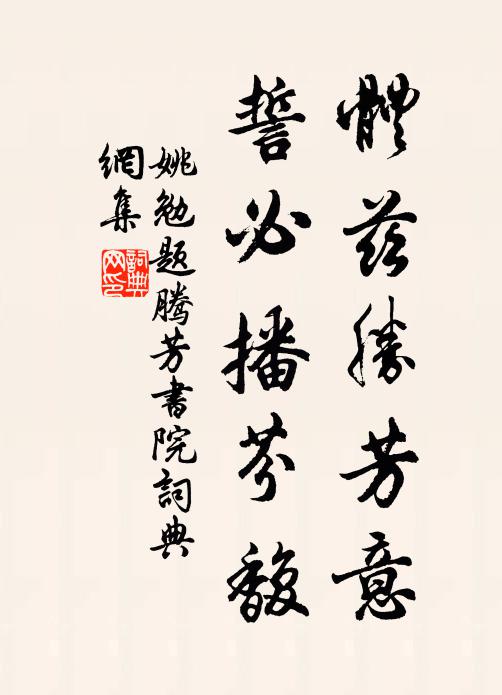 體茲勝芳意
誓必播芬馥
姚勉題騰芳書院詞典
網集
詞典
网印